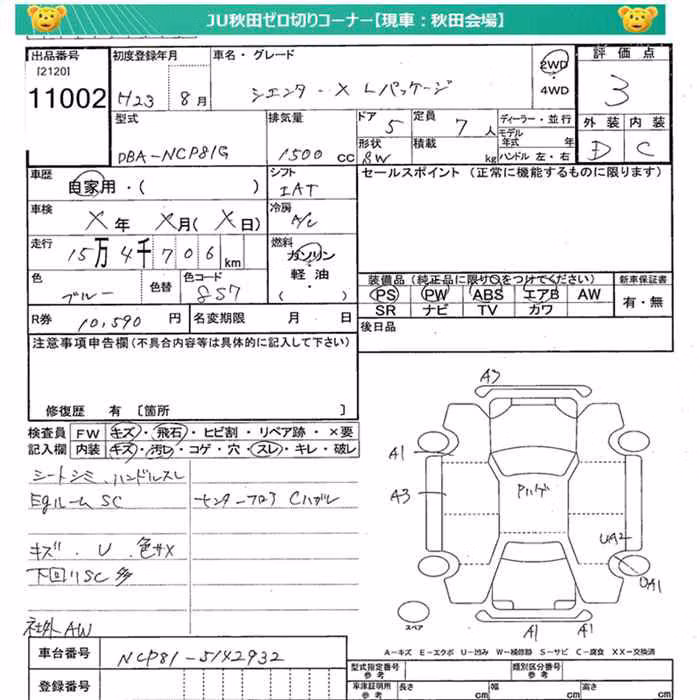 JU秋田ゼロ切りコーナー【現車：秋田会場】
出品番号
[2120]
11002
初度登録年月
H23 8月
車名・グレード
シエンタ - X Lパッケージ
2WD
・
4WD
評価点
3
外装 内装
D C
型式
DBA-NCP81G
排気量
1500 cc
ドア 5
形状 BW
定員 7 人
積載 kg
ディーラー・並行
モデル
年式 年
ハンドル 左・右
車歴
自家用・( )
シフト
IAT
セールスポイント (正常に機能するものに限ります)
車検
X年 X月(X日)
冷房
A/C
走行
15万4千706km
燃料
ガソリン
軽油・
( )
色
ブルー
色替
色コード
8S7
装備品 (純正品に限り○をつけてください)
新車保証書
PS PW ABS エアB AW
有・無
SR ナビ TV カワ
R券 10,590 円
名変期限 月 日
後日品
注意事項申告欄 (不具合内容等は具体的に記入して下さい)
修復歴 有 [箇所 ]
検査員 FW キズ・飛石・ヒビ割・リペア跡・×要
記入欄 内装 キズ・汚レ・コゲ・穴・スレ・キレ・破レ
シートシミ.ハンドルスレ
Egルーム SC
センターフロア Cハガレ
キズ . U . 色サメ
下回リSC 多
社外 AW
A3
A1
A3
Pハゲ
UA2
UA1
A1 A1
スペア
A－キズ E－エクボ U－凹み W－補修跡 S－サビ C－腐食 XX－交換済
車台番号
NCP81-5142932
登録番号
型式指定番号
参考
類別区分番号
参考
車庫証明用
参考
長さ cm
幅 cm
高さ cm